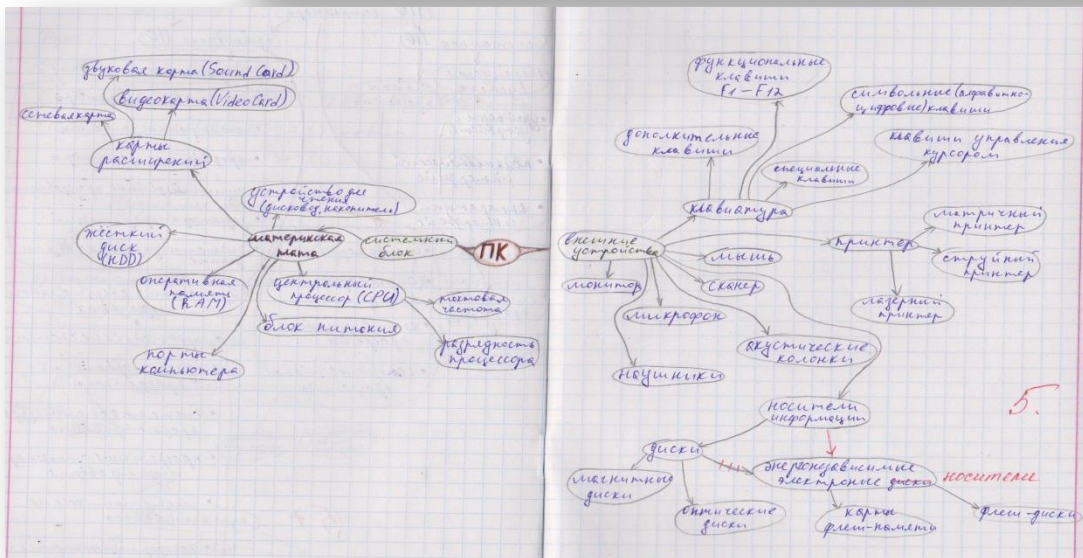 звуковая карта (Sound Card)
видеокарта (Video Card)
сетевая карта
карты
расширений
устройство для
чтения
(дисковод, накопитель)
жёсткий
диск
(HDD)
материнская
плата
системный
блок
ПК
оперативная
память
(RAM)
центральный
процессор (CPU)
тактовая
частота
блок питания
разрядность
процессора
порты
компьютера
функциональные
клавиши
F1-F12
символьные (алфавитно-
цифровые) клавиши
дополнительные
клавиши
клавиши управления
курсором
специальные
клавиши
клавиатура
матричный
принтер
внешние
устройства
принтер
струйный
принтер
мышь
монитор
сканер
лазерный
принтер
микрофон
акустические
колонки
наушники
носители
информации
5.
диски
энергонезависимые
электроные диски носители
магнитные
диски
оптические
диски
карты
флеш-памяти
флеш-диски